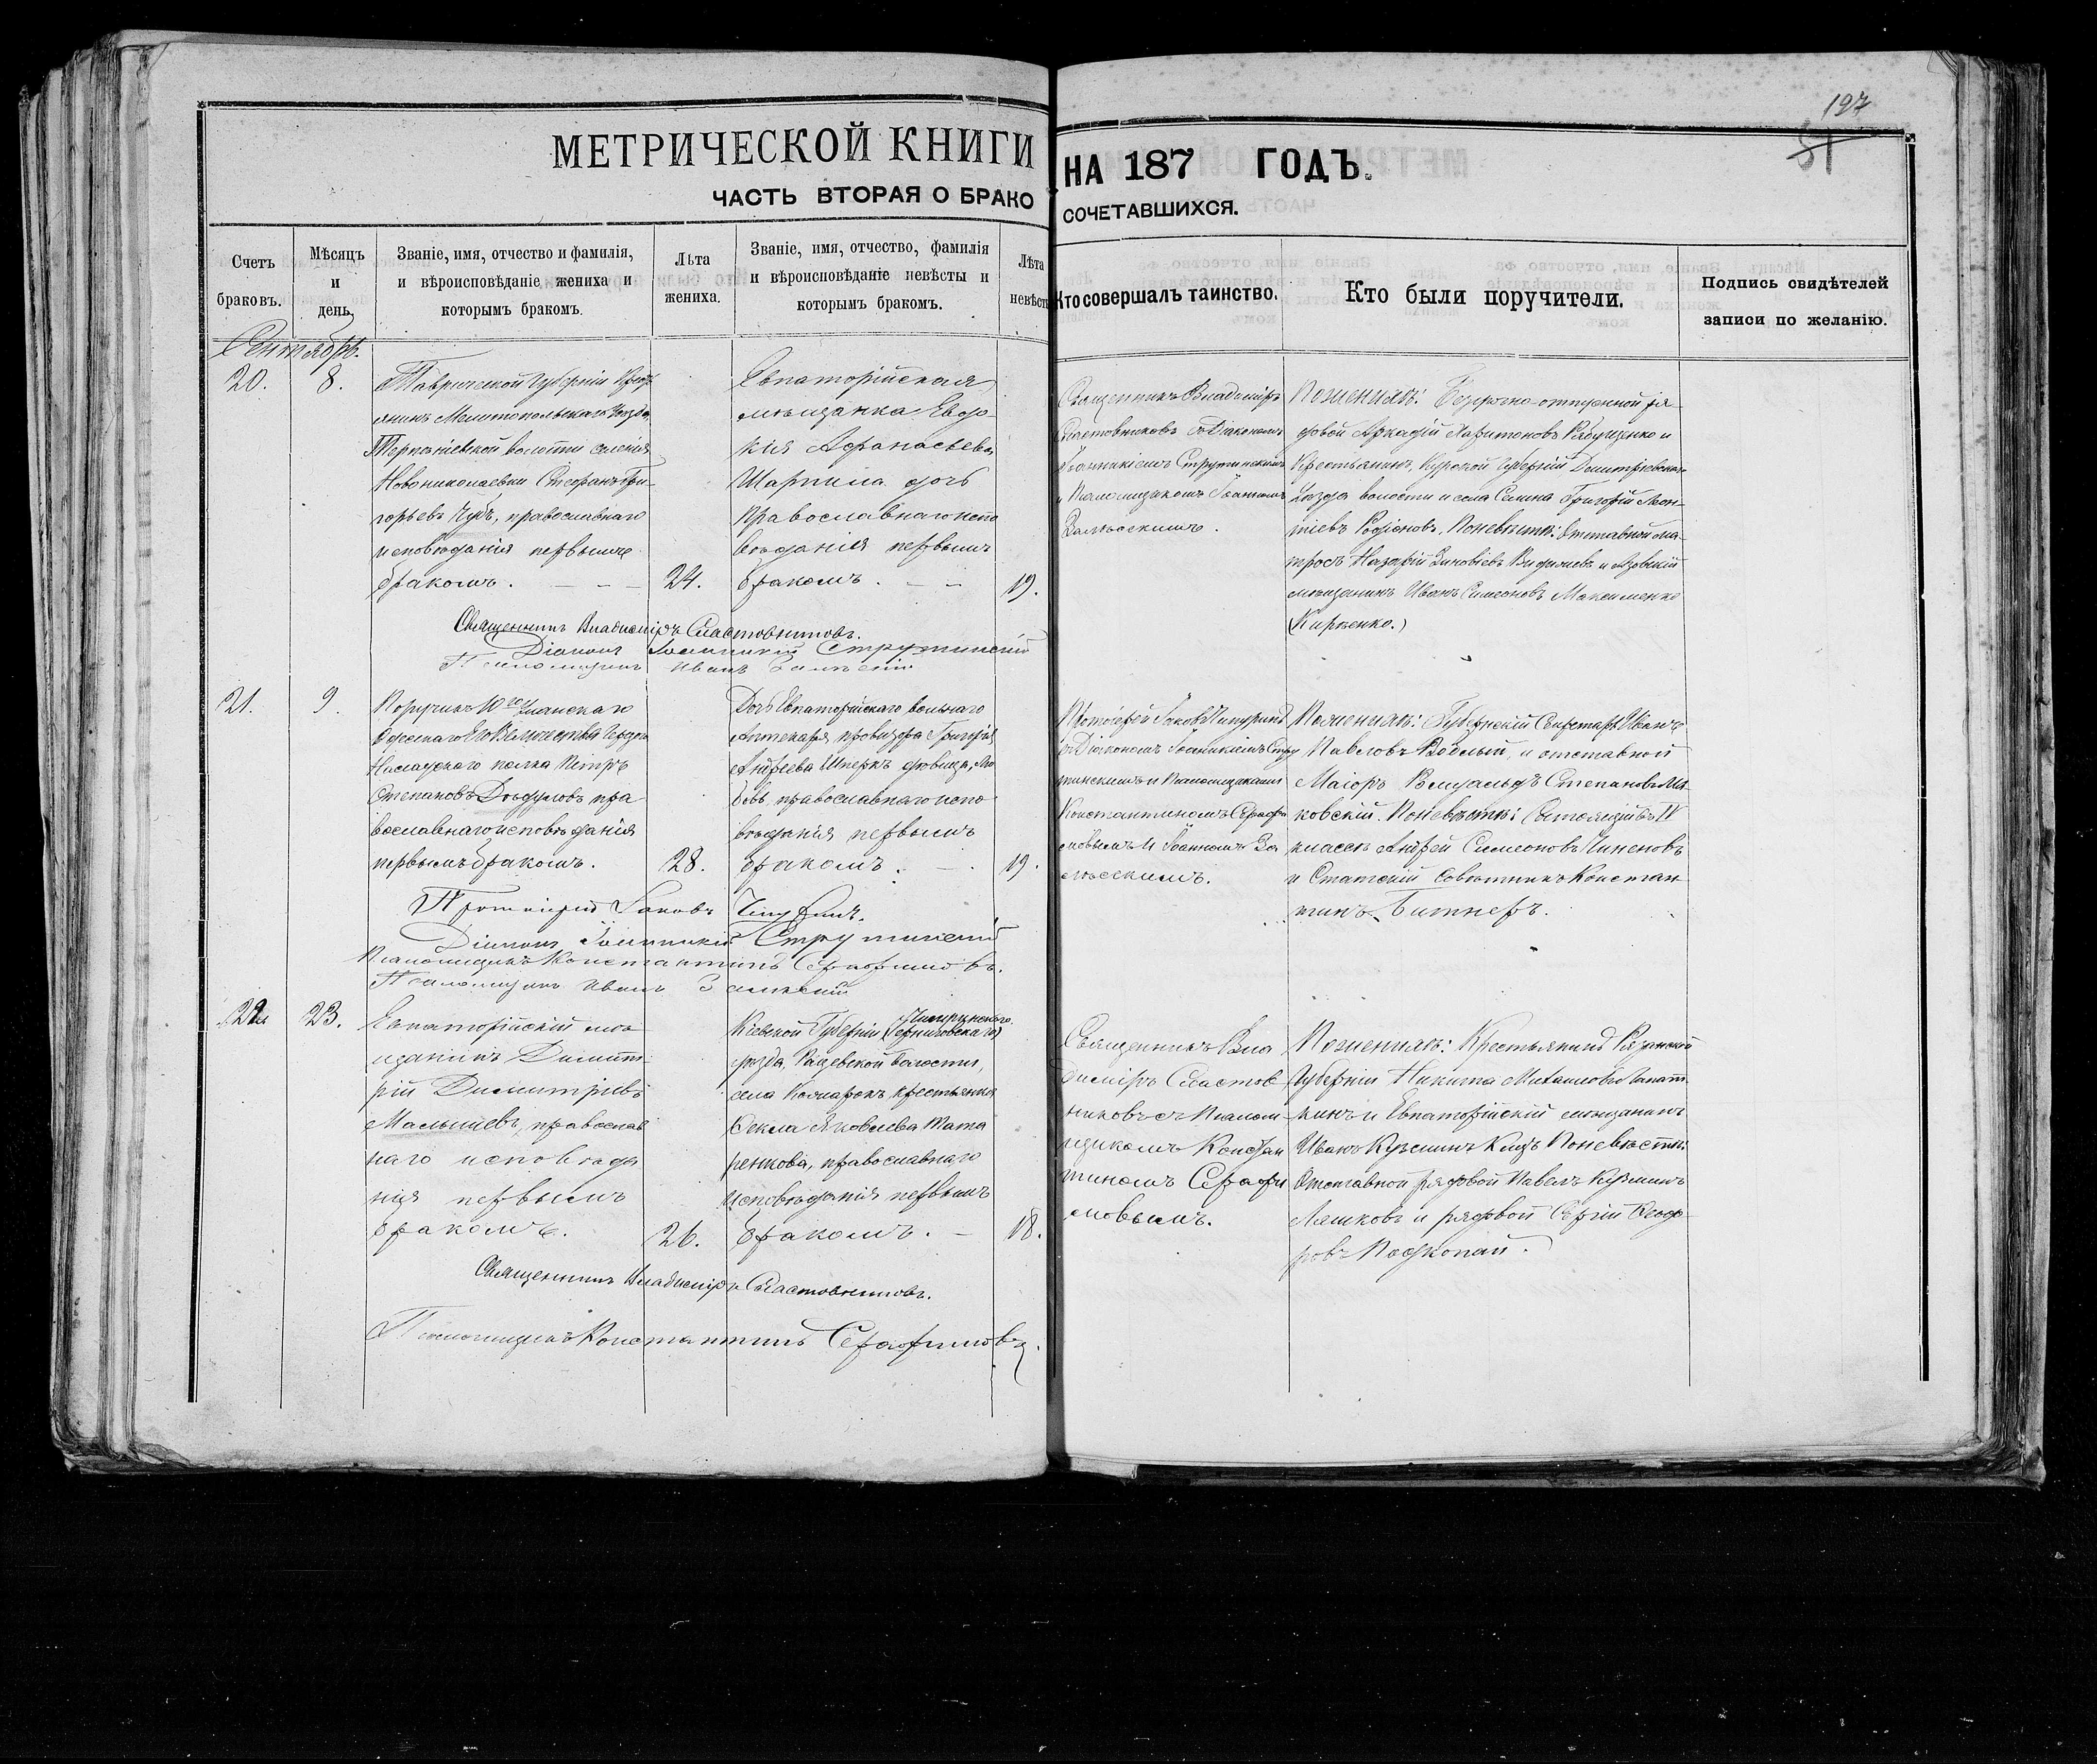 127
51
МЕТРИЧЕСКОЙ КНИГИ НА 187 ГОДЪ.
ЧАСТЬ ВТОРАЯ О БРАКО СОЧЕТАВШИХСЯ.
Счетъ браковъ.
Мѣсяцъ и день.
Званіе, имя, отчество и фамилія,
и вѣроисповѣданіе жениха и
которымъ бракомъ.
Лѣта
жениха.
Званіе, имя, отчество, фамилія
и вѣроисповѣданіе невѣсты и
которымъ бракомъ.
Лѣта
невѣсты
Кто совершалъ таинство.
Кто были поручители.
Подпись свидѣтелей
записи по желанію.
Сентябрь.
20.
8.
Таврической Губерніи Крест
янинъ Мелитопольскаго Уѣзда,
волости селенія
Новониколаевки Стефанъ Гри-
горьевъ Чубъ, православнаго
исповѣданія первымъ
бракомъ.
24.
Евпаторійская
мѣщанка Евдо-
кія Афанасьева
Шарпила дочь
православнаго испо
вѣданія первымъ
бракомъ.
19.
Священникъ Владиміръ
Сластовниковъ съ Діакономъ
Іоанникіемъ Струтинскимъ
и Псаломщикомъ Іоанномъ
Залѣсскимъ.
По женихѣ: Безсрочно-отпускной ря-
довой Аркадій Харитоновъ и
Крестьянинъ, Курской Губерніи Димитріевскаго
Уѣзда волости и села Григорій Леон-
тіевъ Родіоновъ. По невѣстѣ: Отставной ма-
тросъ Назарій Зиновіевъ и Азовскій
мѣщанинъ Иванъ Симеоновъ Максименко
(Кириенко.)
Священникъ Владиміръ Сластовниковъ.
Діаконъ Іоанникій Струтинскій
Псаломщикъ Иванъ Залѣсскій
21.
9.
Поручикъ 10го Уланскаго
Одесскаго Его Величества Герцога
Нассаускаго полка Петръ
Степановъ Дѣдуловъ пра
вославнаго исповѣданія
первымъ бракомъ.
28.
Дочь Евпаторійскаго вольнаго
Аптекаря, провизора Григорія
Андреева Шперкъ дѣвица, Лю
бовь, православнаго испо
вѣданія первымъ
бракомъ.
19.
Протоіерей Іаковъ Чепуринъ
съ Діакономъ Іоанникіемъ Стру
тинскимъ и Псаломщиками
Константиномъ Серафи
мовымъ и Іоанномъ За
лѣсскимъ.
По женихѣ: Губернскій Секретарь Иванъ
Павловъ и отставной
Маіоръ Степановъ
ковскій. По невѣстѣ: Состоящій въ IV
классѣ Андрей Симеоновъ Пиленовъ
и Статскій Совѣтникъ Констан
тинъ Битнеръ.
Протоіерей Іаковъ Чепуринъ.
Діаконъ Іоанникій Струтинскій
Псаломщикъ Константинъ Серафимовъ.
Псаломщикъ Иванъ Залѣсскій
22
23.
Евпаторійскій мѣ
щанинъ Димит
рій Димитріевъ
Малышевъ, православ
наго исповѣда
нія первымъ
бракомъ.
26.
Чигиринскаго
Кіевской Губерніи (Черниговскаго)
уѣзда, Рацевской волости,
села крестьянка
Ѳекла Яковлева Тата
ренкова, православнаго
исповѣданія первымъ
бракомъ.
18.
Священникъ Вла
диміръ Сластов
никовъ съ Псалом-
щикомъ Констан
тиномъ Серафи
мовымъ.
По женихѣ: Крестьянинъ Рязанской
Губерніи Никита Михаиловъ Лапат
кинъ и Евпаторійскій мѣщанинъ
Иванъ Кузминъ По невѣстѣ:
Отставной рядовой Павелъ Кузминъ
Ляшковъ и рядовой Сергій Ѳеодо-
ровъ Подкопай.
Священникъ Владиміръ Сластовниковъ.
Псаломщикъ Константинъ Серафимовъ.